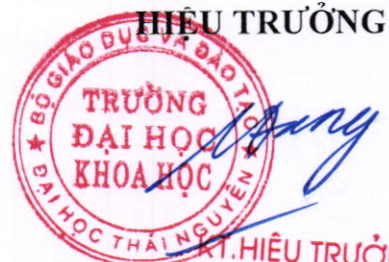 HIỆU TRƯỞNG
BỘ GIÁO DỤC VÀ ĐÀO TẠO
TRƯỜNG
ĐẠI HỌC
KHOA HỌC
ĐẠI HỌC THÁI NGUYÊN
KT.HIỆU TRƯỞ